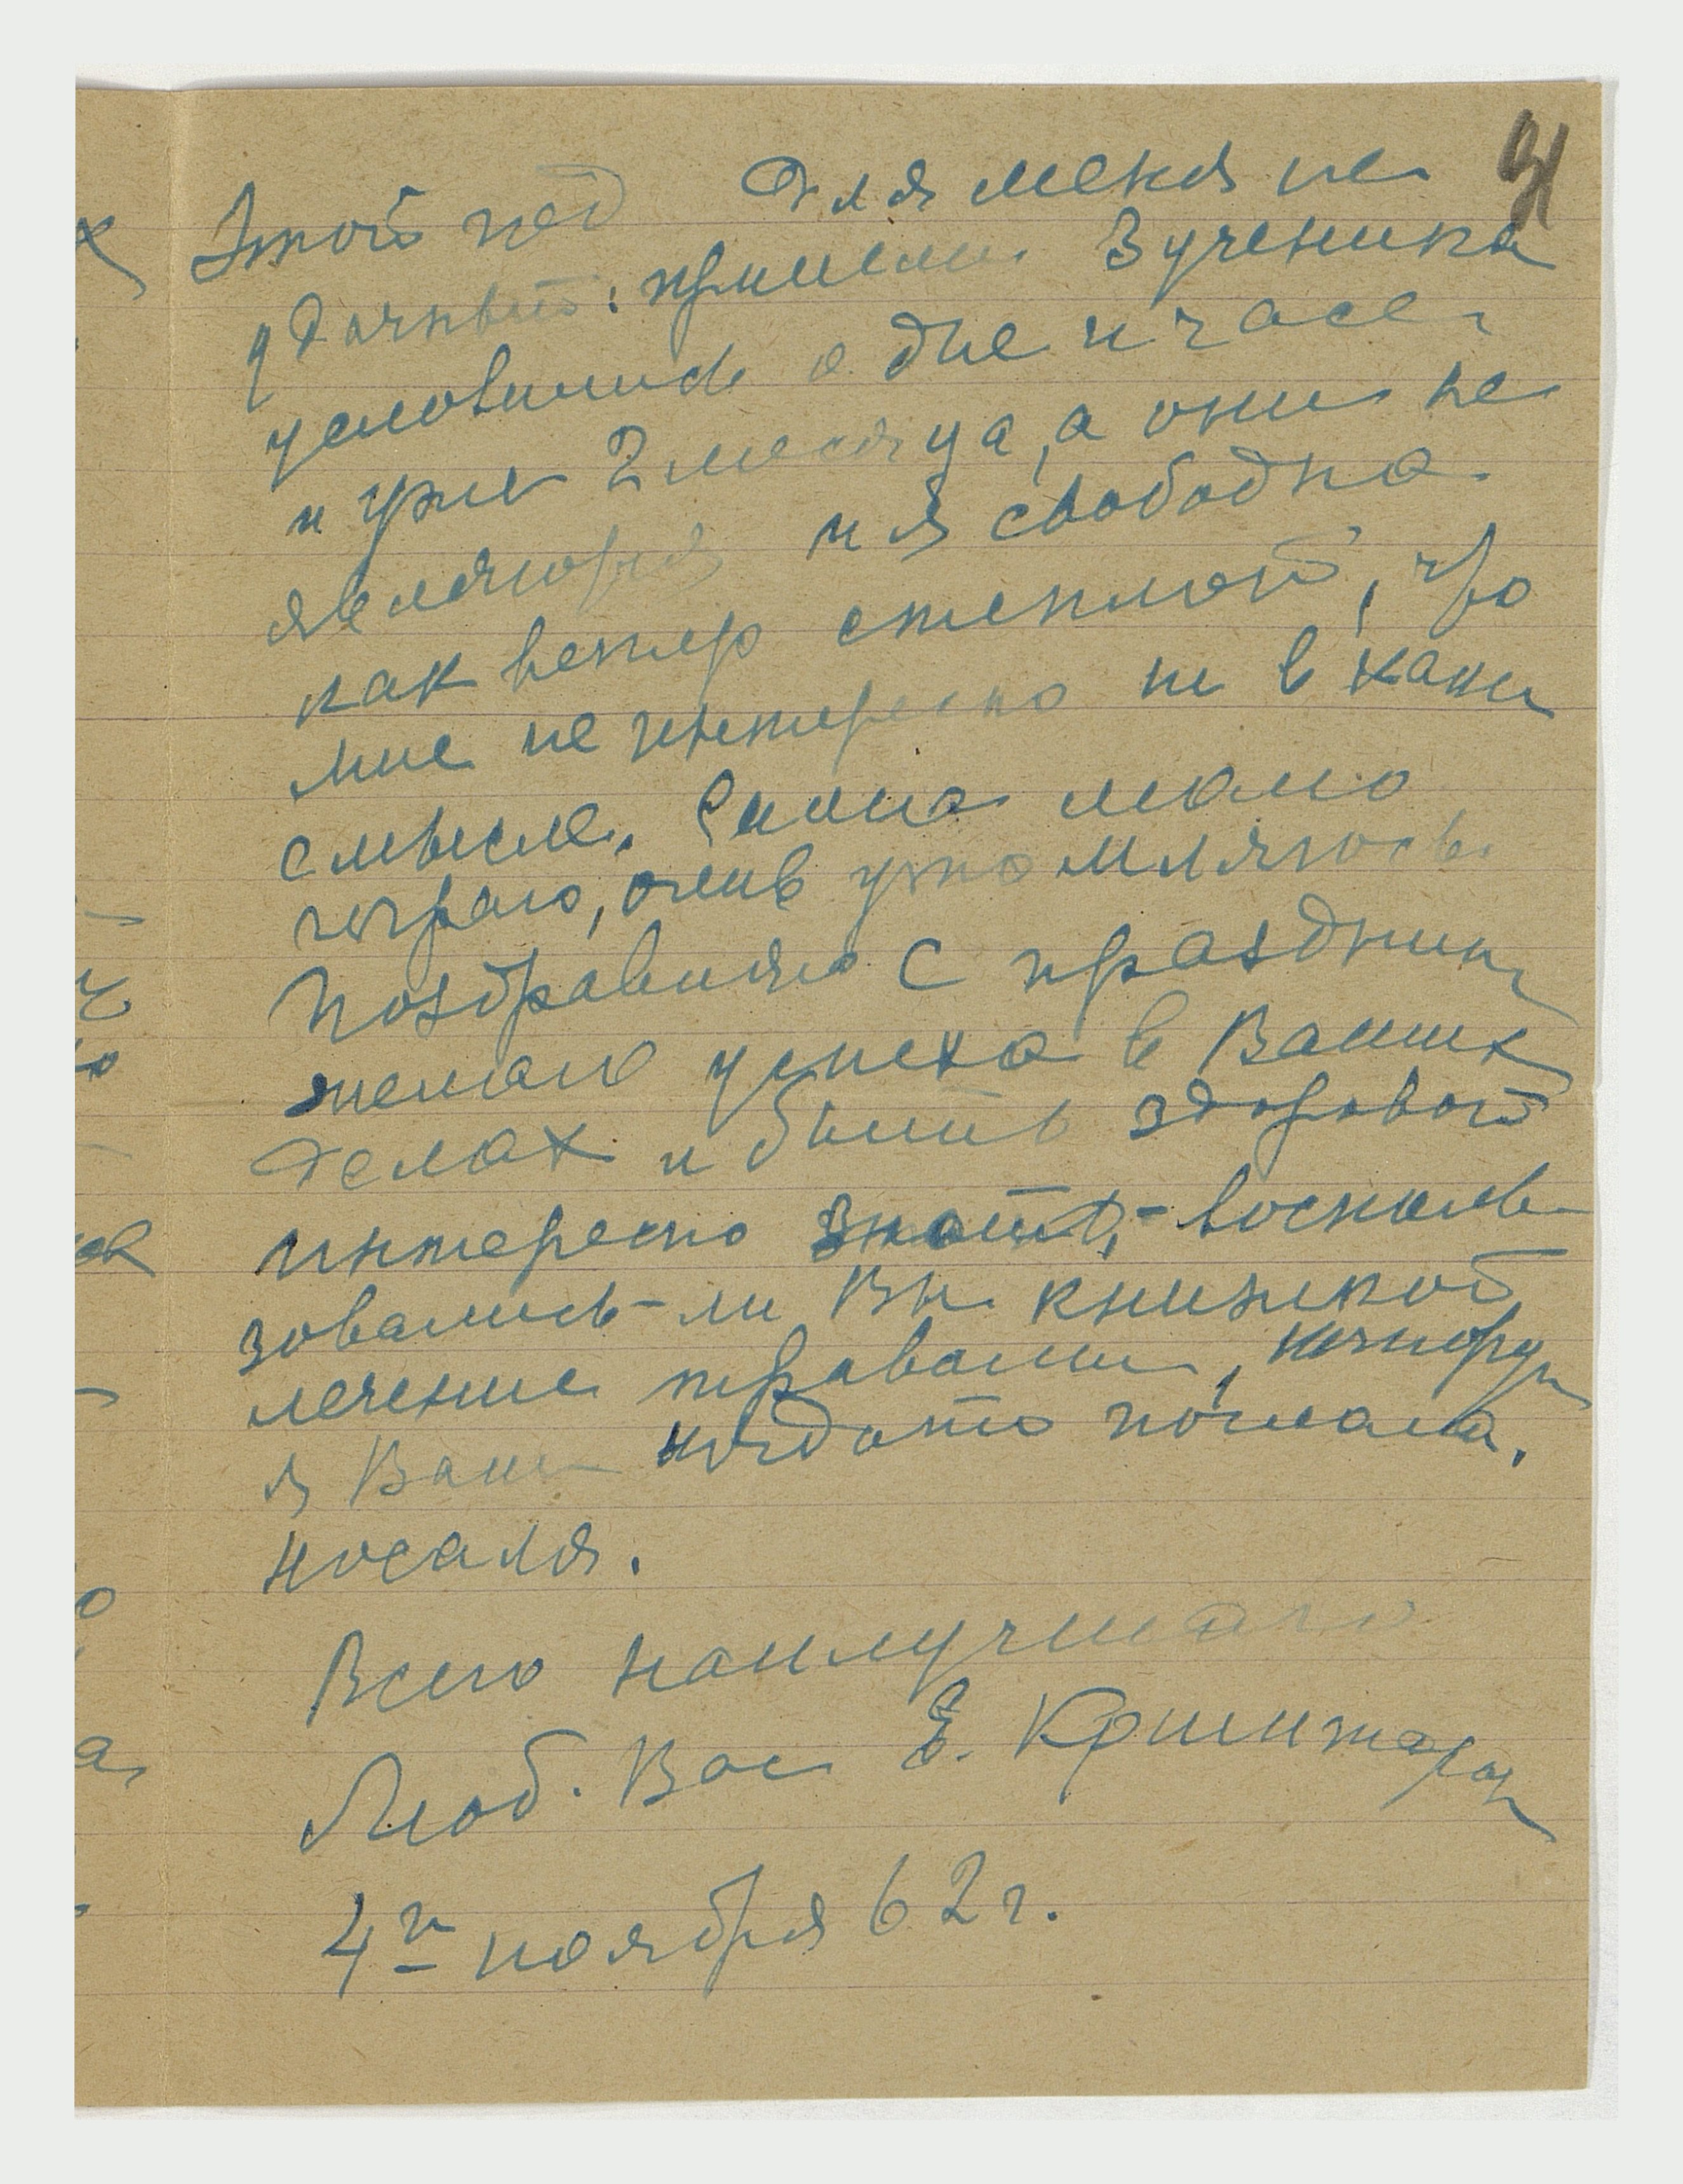 91
Этот год для меня не
удачный: пришли 3 ученика
условились о дне и часе
и уже 2 месяца, а они не
являются и я свободна
как ветер степной, что
мне не интересно ни в каком
смысле. Сама мало
играю, очень утомляюсь.
Поздравляю с праздником
желаю успеха в Ваших
делах и быть здоровой
интересно знать, - восполь
зовались-ли Вы книжкой
лечение травами, которую
я Вам когда то послала.
Всего наилучшего
Люб. Вас Е.
4го ноября 62 г.